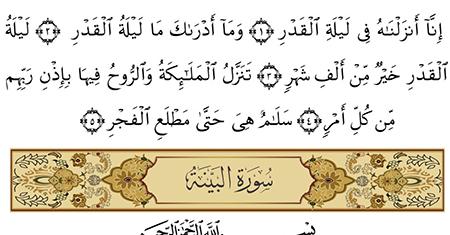 إِنَّآ أَنزَلْنَٰهُ فِى لَيْلَةِ ٱلْقَدْرِ ﴿١﴾ وَمَآ أَدْرَىٰكَ مَا لَيْلَةُ ٱلْقَدْرِ ﴿٢﴾ لَيْلَةُ
ٱلْقَدْرِ خَيْرٌ مِّنْ أَلْفِ شَهْرٍ ﴿٣﴾ تَنَزَّلُ ٱلْمَلَٰٓئِكَةُ وَٱلرُّوحُ فِيهَا بِإِذْنِ رَبِّهِم
مِّن كُلِّ أَمْرٍ ﴿٤﴾ سَلَٰمٌ هِىَ حَتَّىٰ مَطْلَعِ ٱلْفَجْرِ ﴿٥﴾
سُورَةُ البَيِّنَةِ
بِسْمِ ٱللَّهِ ٱلرَّحْمَٰنِ ٱلرَّحِيمِ